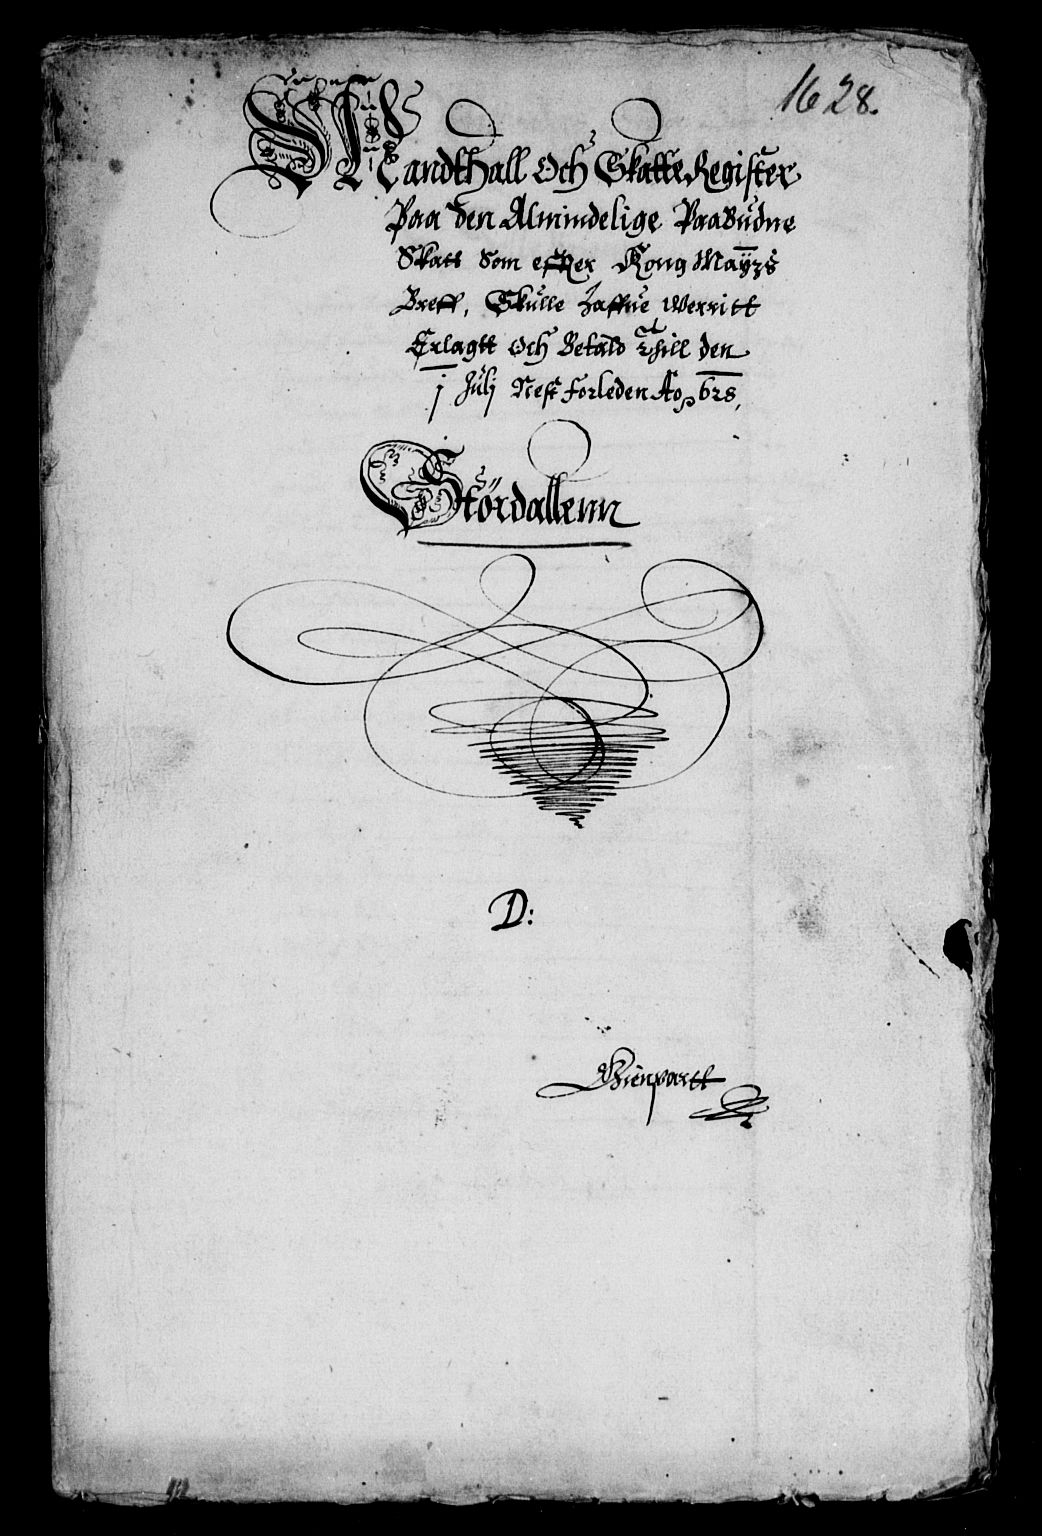 1628.
Mandthall Och Skatte Register
Paa den Almindelige Paabudne
Skatt Som effter Kong Mayzs
Breff, Skulle haffue Werritt
Erlagtt Och Betald Thill den
j Julj Nest forleden Ao 628,
Størdallenn
D:
Gienpartt